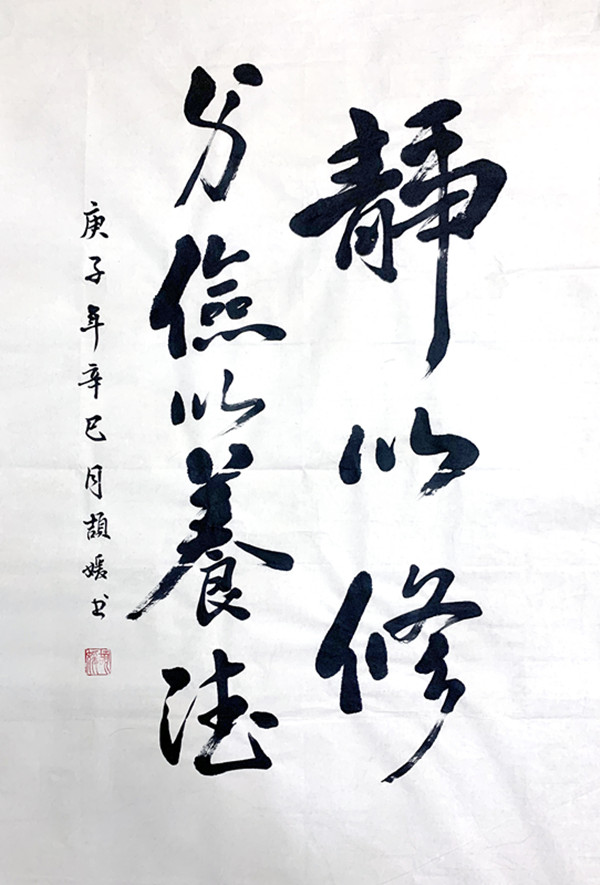 静以修
身儉以養德
庚子年辛巳月頡媛书